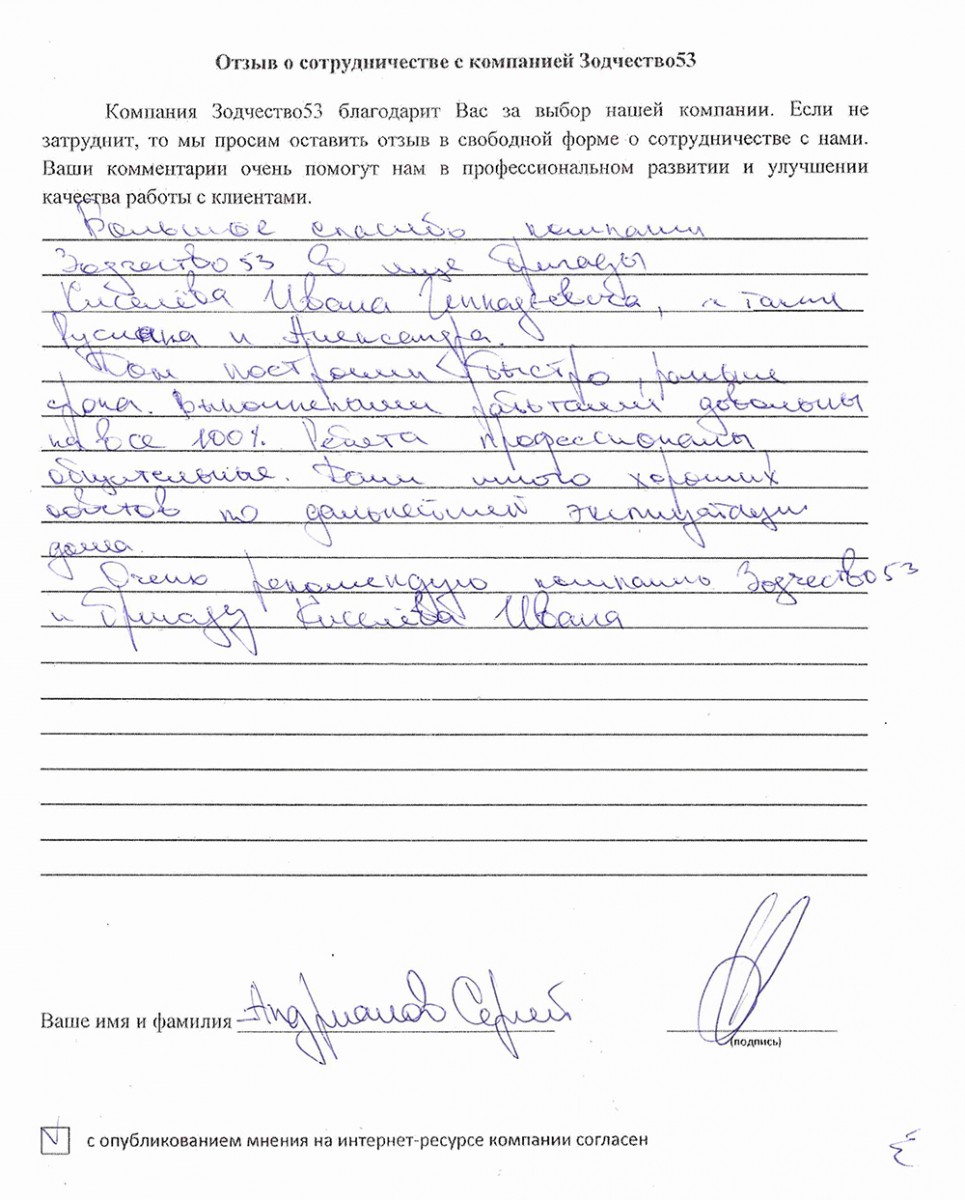 Отзыв о сотрудничестве с компанией Зодчество53
Компания Зодчество53 благодарит Вас за выбор нашей компании. Если не
затруднит, то мы просим оставить отзыв в свободной форме о сотрудничестве с нами.
Ваши комментарии очень помогут нам в профессиональном развитии и улучшении
качества работы с клиентами.
Большое спасибо компании
Зодчество53 в лице бригады
Киселёва Ивана Геннадьевича, а также
Руслана и Александра.
Дом построили быстро, раньше
срока. Выполненными работами довольны
на все 100%. Ребята профессионалы
общительные. Дали много хороших
советов по дальнейшей эксплуатации
дома.
Очень рекомендую компанию Зодчество53
и бригаду Киселёва Ивана
Ваше имя и фамилия Андрианов Сергей
(подпись)
с опубликованием мнения на интернет-ресурсе компании согласен